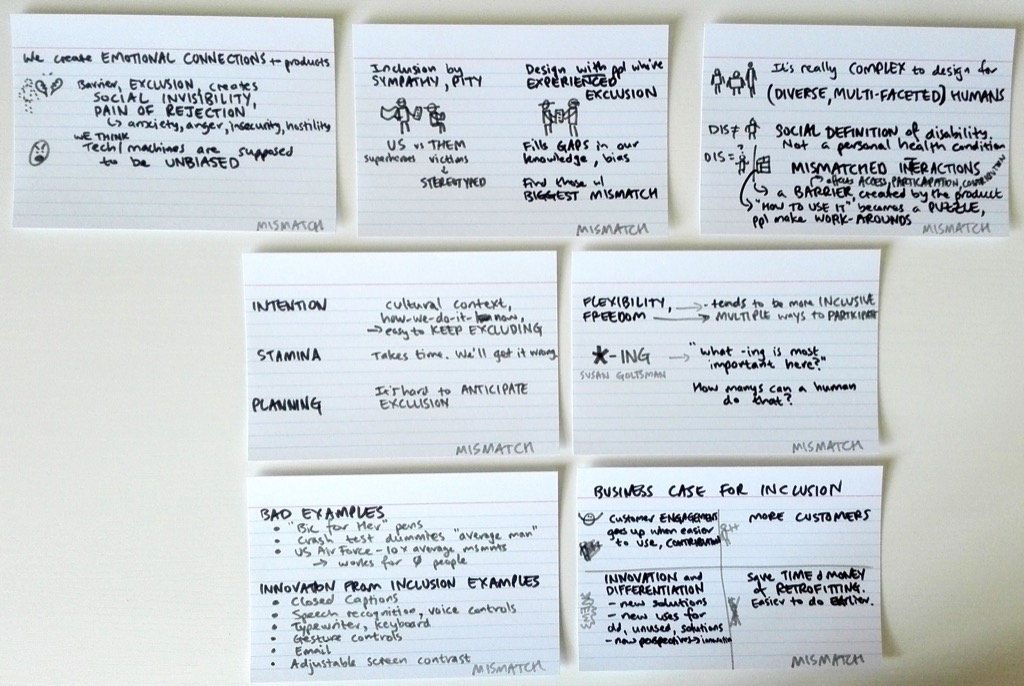 We create EMOTIONAL CONNECTIONS to products
Barrier, EXCLUSION, creates
SOCIAL INVISIBILITY,
PAIN OF REJECTION
↳ anxiety, anger, insecurity, hostility
WE THINK
Tech/machines are supposed
to be UNBIASED
MISMATCH
Inclusion by
SYMPATHY, PITY
US vs THEM
superheroes victims
↓
STEREOTYPED
Design with ppl who've
EXPERIENCED
EXCLUSION
Fills GAPS in our
knowledge, bias
Find those w/
BIGGEST MISMATCH
MISMATCH
It's really COMPLEX to design for
(DIVERSE, MULTI-FACETED) HUMANS
DIS ≠
SOCIAL DEFINITION of disability.
Not a personal health condition
DIS =
MISMATCHED INTERACTIONS
↳ affects ACCESS, PARTICIPATION, CONTRIBUTION
↳ a BARRIER, created by the product
↳ "HOW TO USE IT" becomes a PUZZLE,
ppl make WORK-AROUNDS
MISMATCH
INTENTION
cultural context,
how-we-do-it-now,
→ easy to KEEP EXCLUDING
STAMINA
Takes time. We'll get it wrong
PLANNING
It's hard to ANTICIPATE
EXCLUSION
MISMATCH
FLEXIBILITY, → - tends to be more INCLUSIVE
FREEDOM → MULTIPLE ways to PARTICIPATE
*-ING → "what -ing is most
SUSAN GOLTSMAN important here?"
How manys can a human
do that?
MISMATCH
BAD EXAMPLES
• "Bic for Her" pens
• Crash test dummies "average man"
• US Air Force - 10 x average, msmnts
→ works for 0 people
INNOVATION FROM INCLUSION EXAMPLES
• Closed Captions
• Speech recognition, voice controls
• Typewriter, keyboard
• Gesture controls
• Email
• Adjustable screen contrast
MISMATCH
BUSINESS CASE FOR INCLUSION
Customer ENGAGEMENT
goes up when easier
to use, CONTRIBUTION
MORE CUSTOMERS
INNOVATION and
DIFFERENTIATION
- new solutions
- new uses for
old, unused, solutions
- new perspectives → innovation
Save TIME & MONEY
of RETROFITTING.
Easier to do EARLIER.
MISMATCH